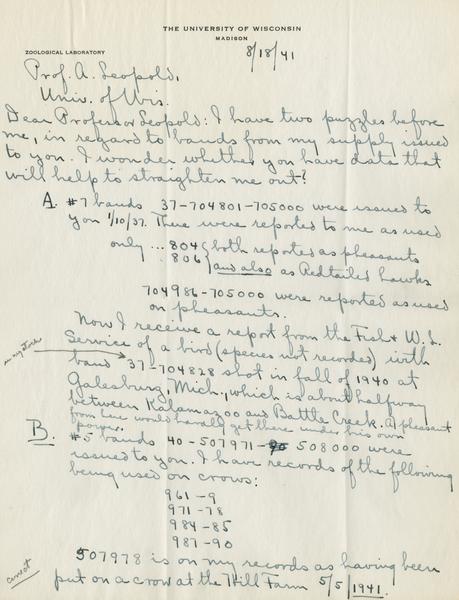 THE UNIVERSITY OF WISCONSIN
MADISON
ZOOLOGICAL LABORATORY
8/18/41
Prof. A. Leopold,
Univ. of Wis.
Dear Professor Leopold: I have two puzzles before
me, in regard to bands from my supply issued
to you. I wonder whether you have data that
will help to straighten me out?
A. #7 bands 37-704801-705000 were issued to
you 1/10/37. There were reported to me as used
only ... 804 } both reported as pheasants
806 } and also as Redtailed Hawks
704986-705000 were reported as used
on pheasants.
Now I receive a report from the Fish & W. L.
Service of a bird (species not recorded) with
band 37-704828 shot in fall of 1940 at
Galesburg, Mich., which is about halfway
between Kalamazoo and Battle Creek. A pheasant
from here would hardly get there under his own
power.
B. #5 bands 40-507971-508000 were
issued to you. I have records of the following
being used on crows:
961-9
971-78
984-85
987-90
507978 is on my records as having been
put on a crow at the Hill Farm 5/5/1941.
correct